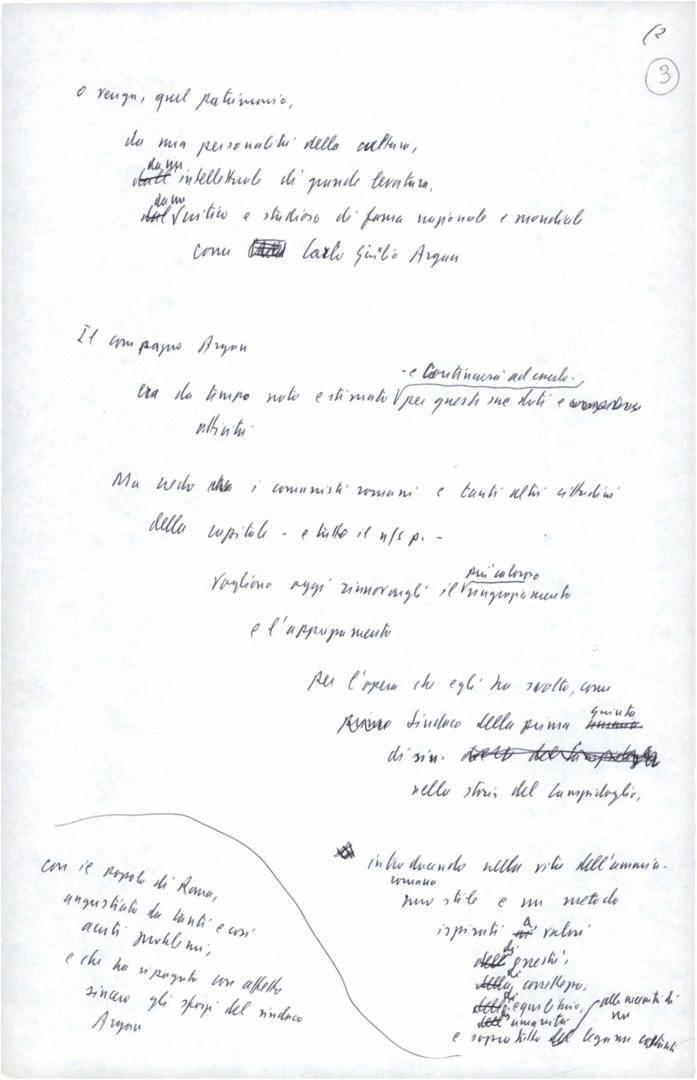 3
o venga, quel patrimonio,
da una personalità della cultura,
da un
intellettuale di grande levatura,
da un
critico e studioso di fama nazionale e mondiale
come Carlo Giulio Argan
Il compagno Argan
- e continuerà ad esserlo -
era da tempo noto e stimato per queste sue doti e
attività
Ma credo che i comunisti romani e tanti altri cittadini
della capitale - e tutto il n/s p. -
più caloroso
vogliono oggi rinnovargli il ringraziamento
e l'apprezzamento
per l'opera che egli ha svolto, come
giunta
primo Sindaco della prima
di sin.
nella storia del Campidoglio,
introducendo nella vita dell'ammin.
romana
uno stile e un metodo
ispirati a valori
di onestà,
di correttezza,
di equilibrio,
di umanità
e soprattutto del legame costante
con il popolo di Roma,
angustiato da tanti e così
acuti problemi,
e che ha ripagato con affetto
sincero gli sforzi del sindaco
Argan